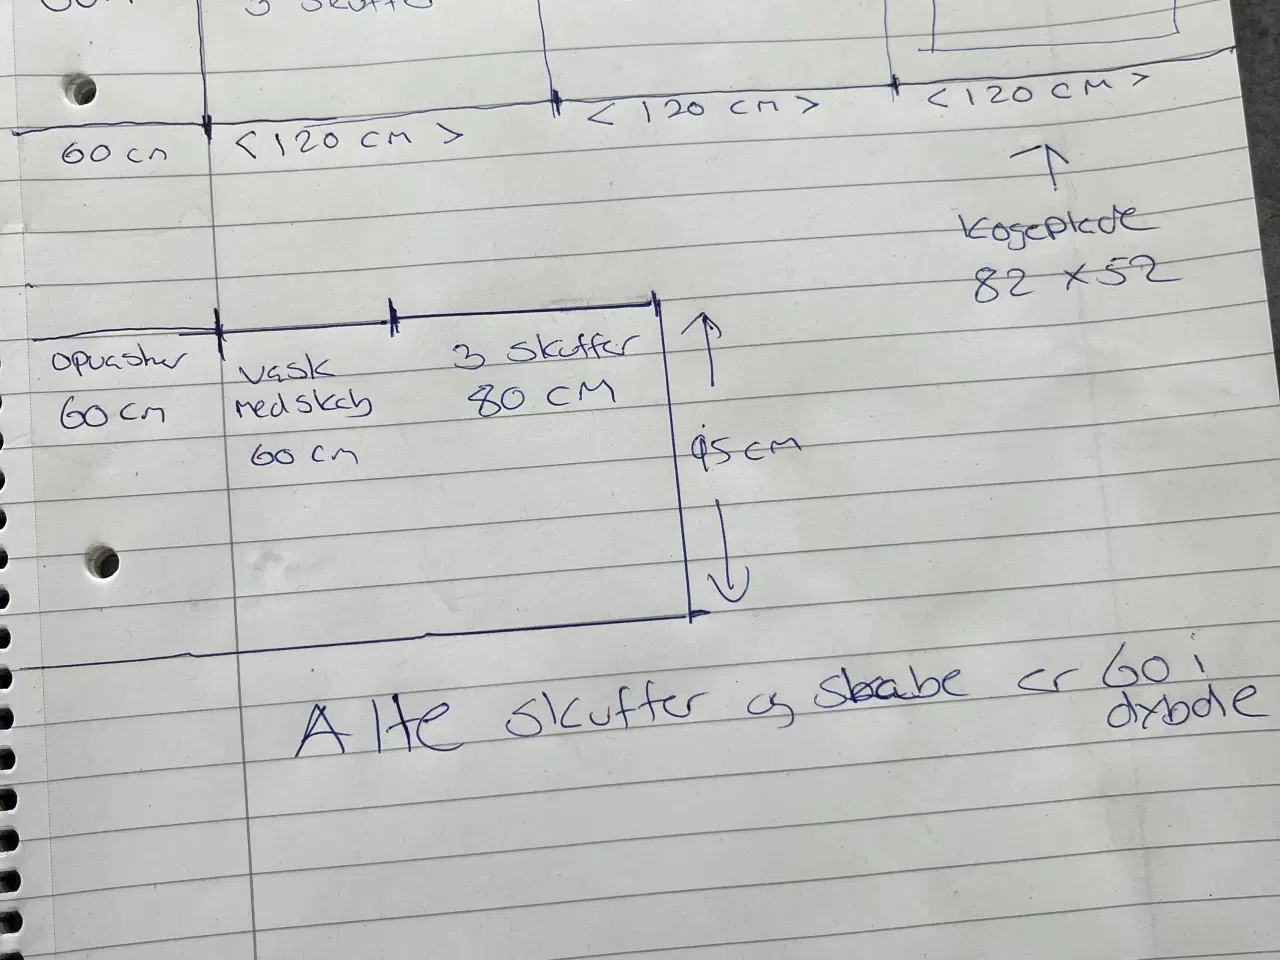 3 skuffer
60 cm <120 cm> <120 cm> <120 cm>
Kogeplade
82 x 52
opvasker
60 cm
vask
med skab
60 cm
3 skuffer
80 cM
95 cM
Alle skuffer og skabe er 60 i
dybde